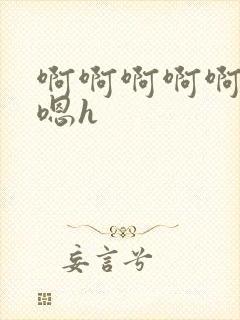 啊啊啊啊啊
嗯h
妄言兮